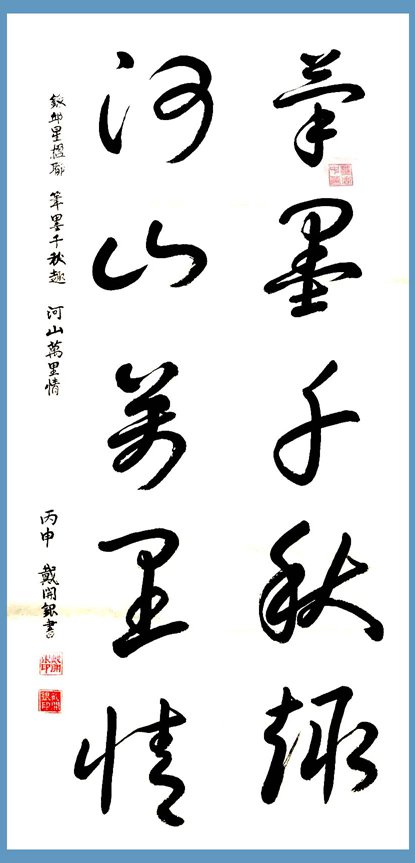 筆墨千秋趣
河山萬里情
筆墨千秋趣 河山萬里情
丙申 戴開銀書